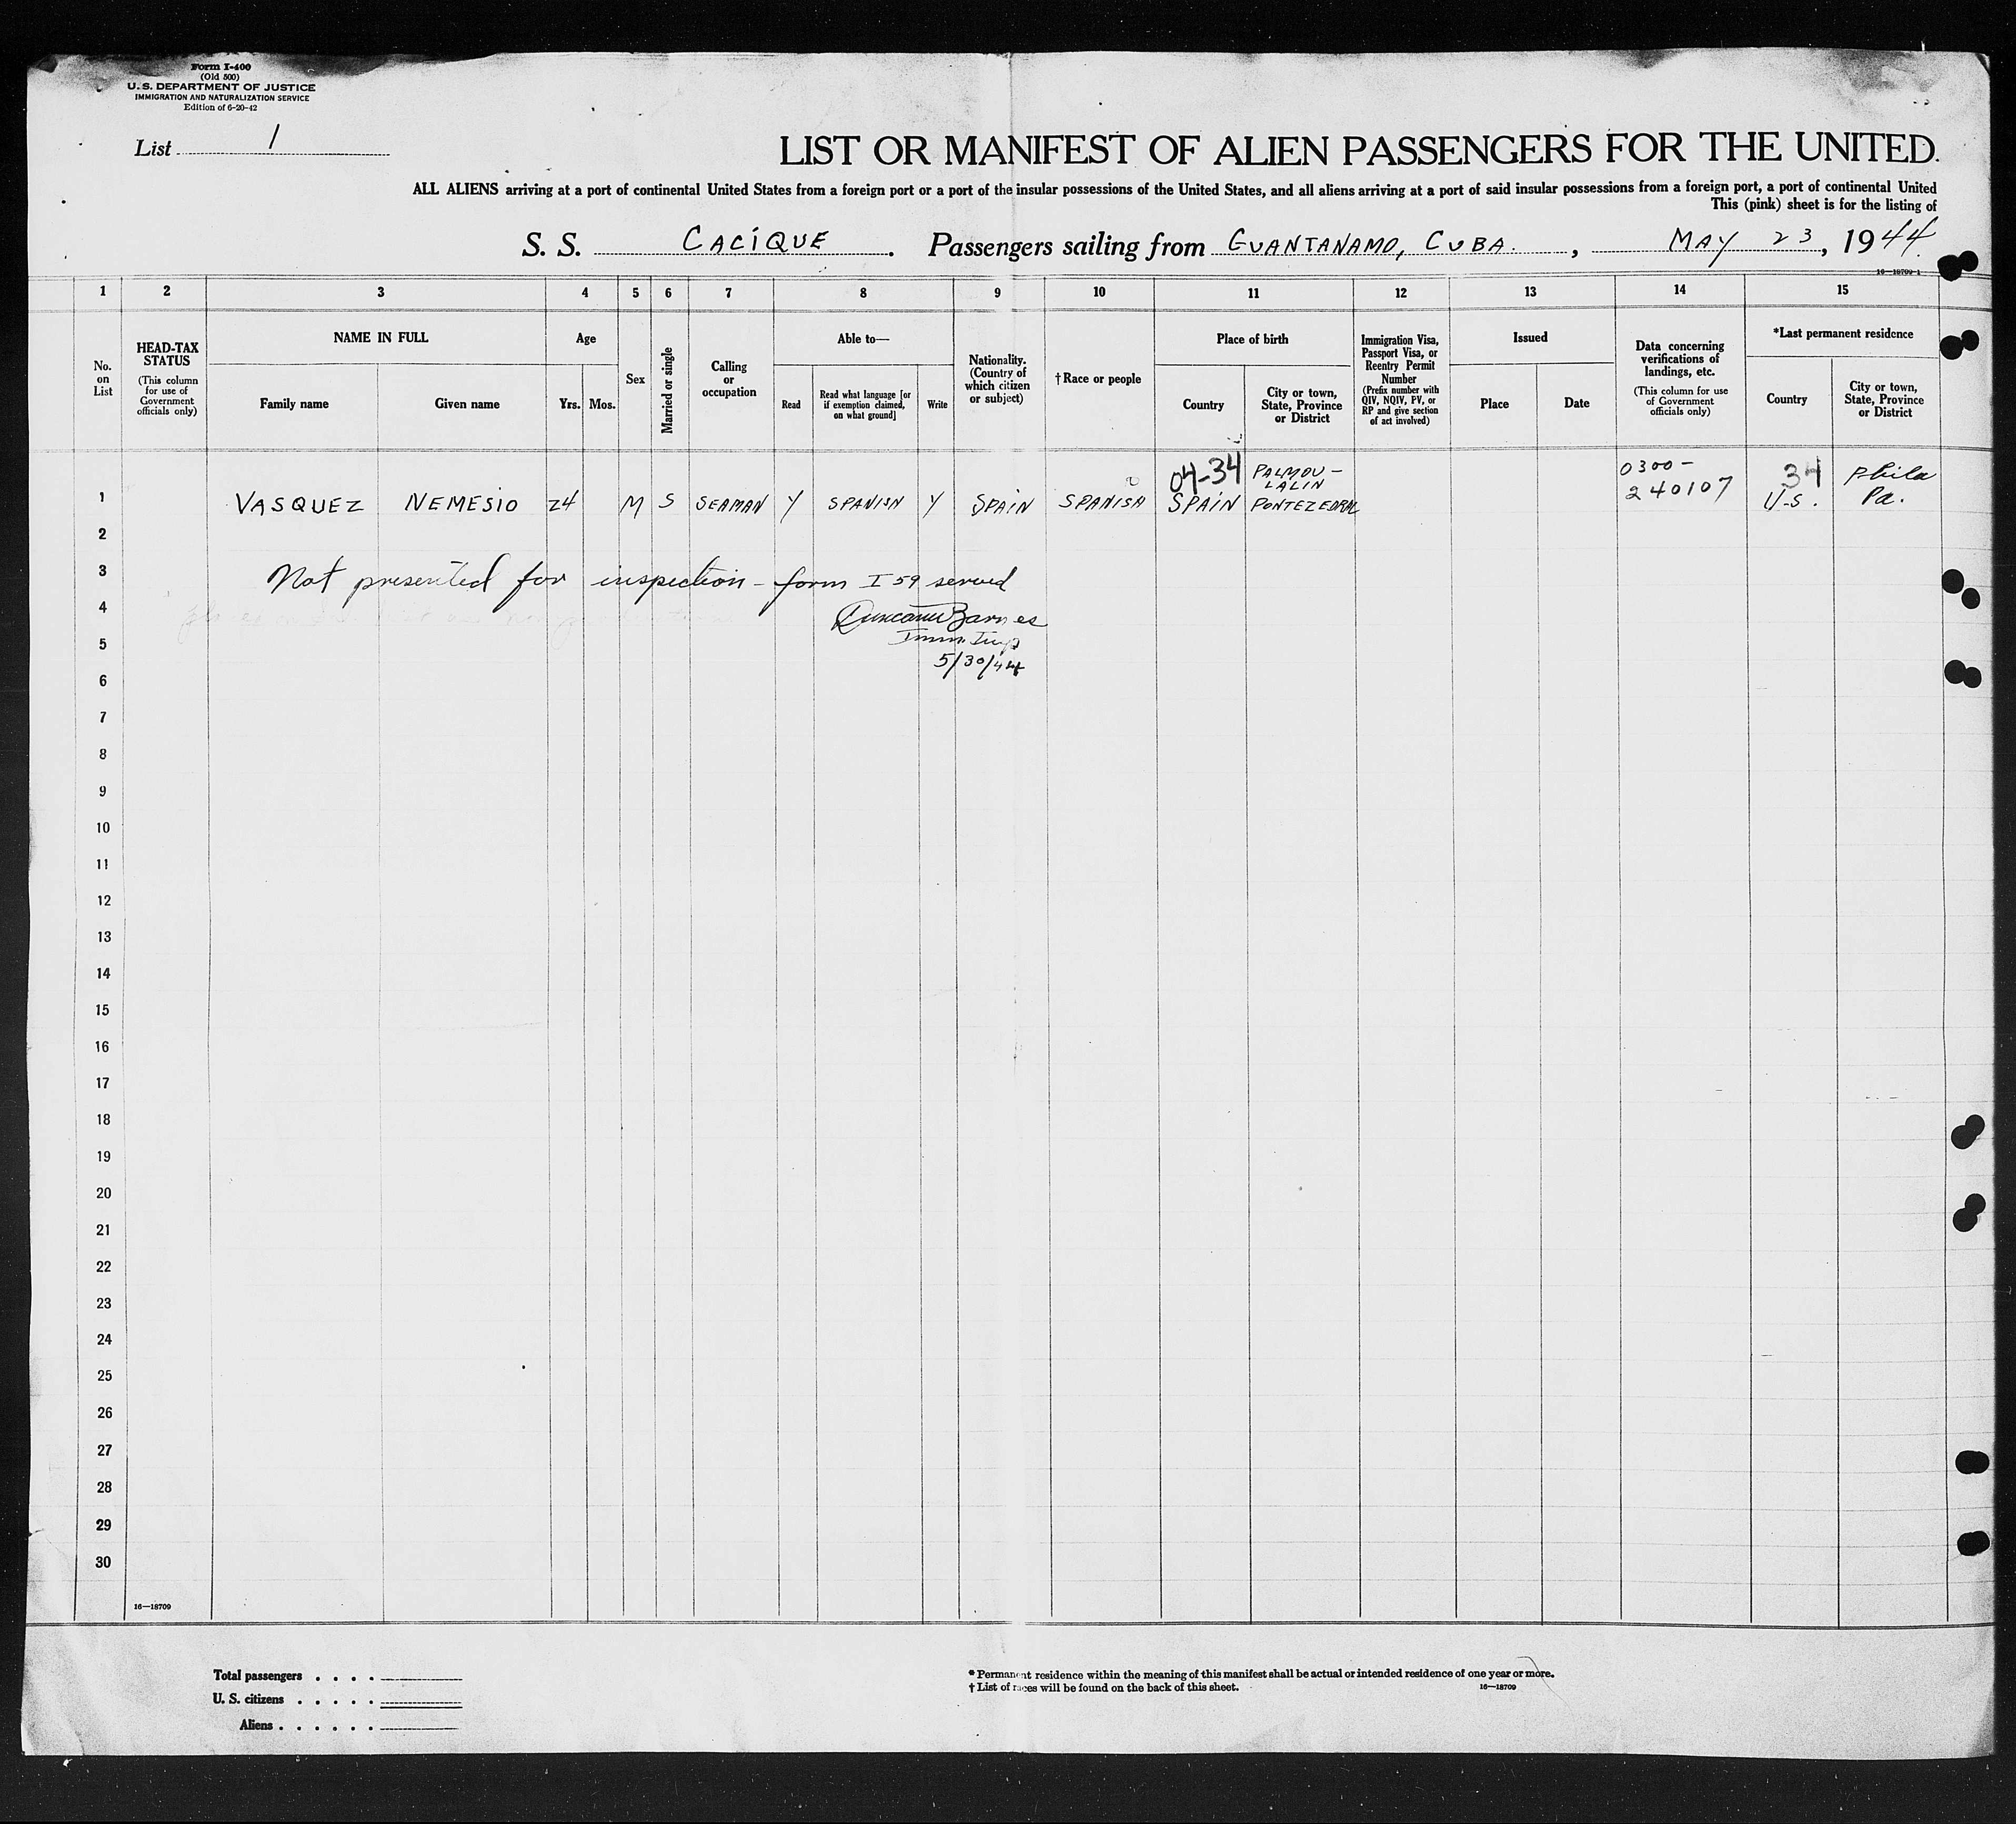 Form I-400
(Old 500)
U. S. DEPARTMENT OF JUSTICE
IMMIGRATION AND NATURALIZATION SERVICE
Edition of 6-20-42
List 1
LIST OR MANIFEST OF ALIEN PASSENGERS FOR THE UNITED
ALL ALIENS arriving at a port of continental United States from a foreign port or a port of the insular possessions of the United States, and all aliens arriving at a port of said insular possessions from a foreign port, a port of continental United
This (pink) sheet is for the listing of
S. S. CACIQUE. Passengers sailing from GUANTANAMO, CUBA., MAY 23, 1944
16—18709-1
1 2 3 4 5 6 7 8 9 10 11 12 13 14 15
No. on List
HEAD-TAX STATUS
(This column for use of Government officials only)
NAME IN FULL
Family name
Given name
Age
Yrs.
Mos.
Sex
Married or single
Calling or occupation
Able to—
Read
Read what language [or if exemption claimed, on what ground]
Write
Nationality. (Country of which citizen or subject)
†Race or people
Place of birth
Country
City or town, State, Province or District
Immigration Visa, Passport Visa, or Reentry Permit Number
(Prefix number with QIV, NQIV, PV, or RP and give section of act involved)
Issued
Place
Date
Data concerning verifications of landings, etc.
(This column for use of Government officials only)
*Last permanent residence
Country
City or town, State, Province or District
04-34 PALMOU- LALIN 0300- 240107 34 Phila
1 VASQUEZ NEMESIO 24 M S SEAMAN Y SPANISH Y SPAIN SPANISH SPAIN PONTEZEDRAL U.S. Pa.
2
3 Not presented for inspection - form I 59 served
4 Barnes
5 Imm. Insp
5/30/44
6
7
8
9
10
11
12
13
14
15
16
17
18
19
20
21
22
23
24
25
26
27
28
29
30
16—18709
Total passengers . . . .
U. S. citizens . . . . .
Aliens . . . . . .
* Permanent residence within the meaning of this manifest shall be actual or intended residence of one year or more.
† List of races will be found on the back of this sheet.
16—18709